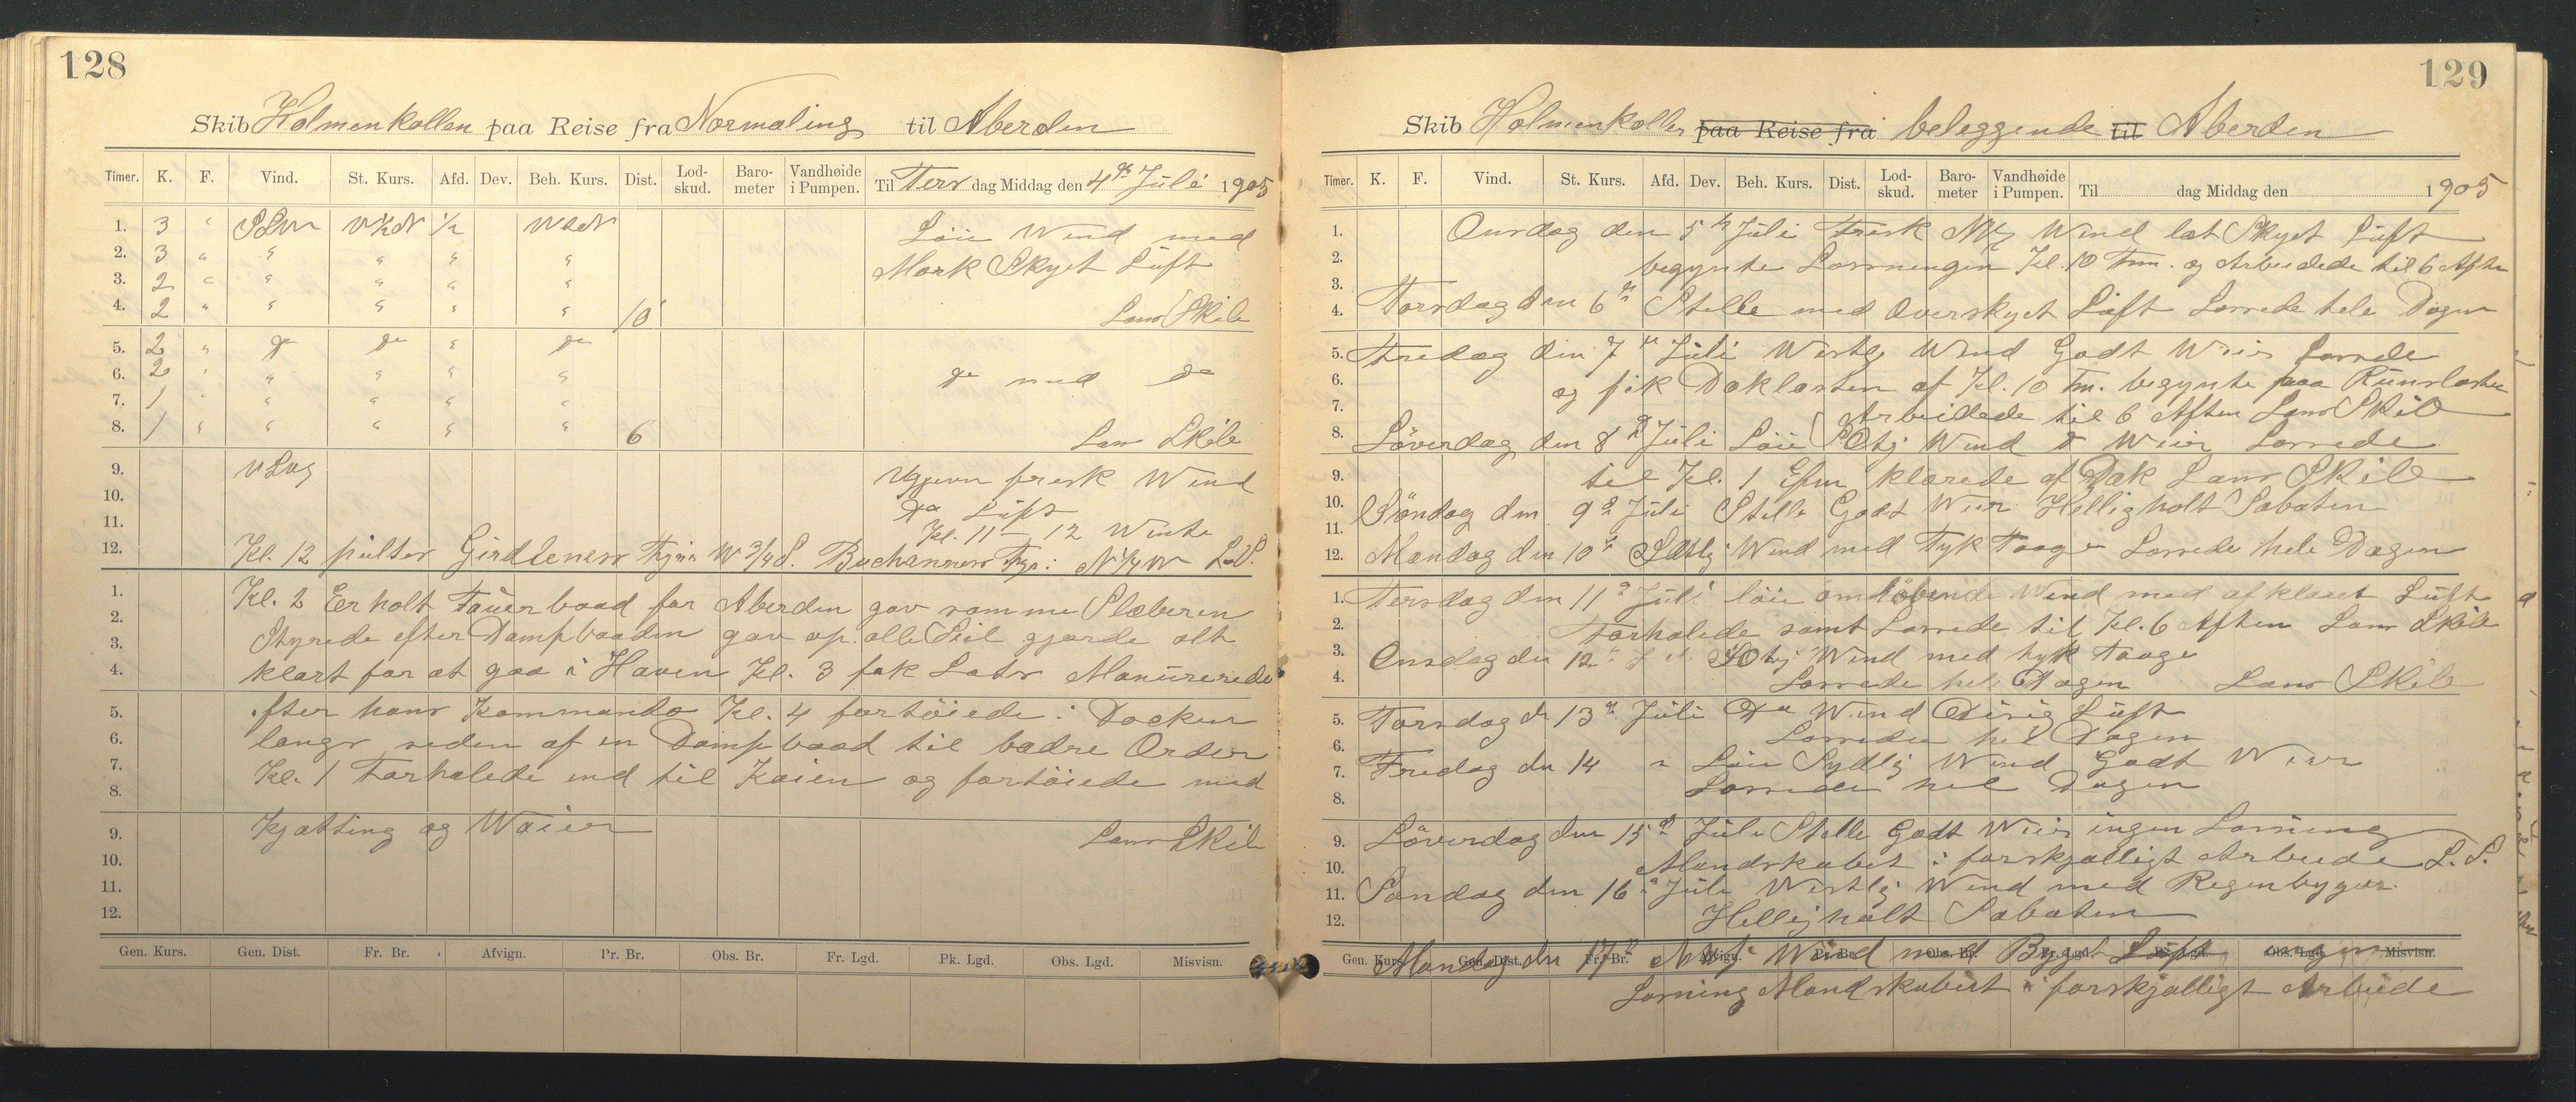 128
Skib Holmenkollen paa Reise fra Normaling til Aberden
Timer. K. F. Vind. St. Kurs. Afd. Dev. Beh. Kurs. Dist. Lod-skud. Baro-meter Vandhøide i Pumpen. Til Tersdag Middag den 4de Juli 1905
1. 3 " SSW V½N ½ Løie Wind med
2. 3 " " " " " Mørk Skyet Luft
3. 2 " " " " "
4. 2 " " " " " 10 Lans Skib
5. 2 " do do " do
6. 2 " " " " " do med do
7. 1 " " " " "
8. 1 " " " " " 6 Lans Skib
9. frisk Wind
10. do Luft
11. Kl. 11 - 12
12. Kl. 12 peilter Girdleness Fyr W 3/4 S. Buchanness Fyr i N¼W L.S.
1. Kl. 2 Erholt Tauerbaad for Aberden gav samme Slæberen
2. Styrede efter Dampbaaden gav op alle Seil gjorde alt
3. klart for at gaa i Haven Kl. 3 fik Lots Manurerede
4.
5. efter hans Kommando Kl. 4 fortøiede i Docken
6. langs seden af en Dampbaad til bædre Order
7. Kl. 1 Forhalede ind til Kaien og fortøiede med
8.
9. Kjætting og Waier Lans Skib
10.
11.
12.
Gen. Kurs. Gen. Dist. Fr. Br. Afvign. Pr. Br. Obs. Br. Fr. Lgd. Pk. Lgd. Obs. Lgd. Misvisn.
129
Skib Holmenkollen paa Reise fra beleggende til Aberden
Timer. K. F. Vind. St. Kurs. Afd. Dev. Beh. Kurs. Dist. Lod-skud. Baro-meter Vandhøide i Pumpen. Til dag Middag den 1905
1. Onsdag den 5te Juli Frisk Wind let Skyet Luft
2. begynte Lossningen Kl. 10 Fm. og Arbeidede til 6 Aften
3.
4. Torsdag den 6te Stille med Overskyet Luft Lossede hele Dagen
5. Fredag den 7de Juli Westlg Wind Godt Weir Lossede
6. og fik Dæklasten af Kl. 10 Fm. begynte paa Rumslasten
7. Arbeidede til 6 Aften Lans Skib
8. Löverdag den 8de Juli Løie SOtlg Wind & Weir Lossede
9. til Kl. 1 Efm klarede af Dæk Lans Skib
10. Söndag den 9de Juli Stille Godt Weir Hellig holt Sabaten
11.
12. Mandag den 10de Wind med Tyk Taage Lossede hele Dagen
1. Tersdag den 11te Juli løie omløbende Wind med afklaret Luft
2. Forhalede samt Lossede til Kl. 6 Aften Lans Skib
3. Onsdag den 12te SOtlg Wind med tyk Taage
4. Lossede hele Dagen Lans Skib
5. Torsdag d 13de Juli do Wind Disig Luft
6. Lossede hel Dagen
7. Fredag den 14 " Løie Sydlig Wind Godt Weir
8. Lossede hel Dagen
9. Löverdag den 15de Juli Stille Godt Weir ingen Losning
10. Mandskabet i forskjælligt Arbeide L.S.
11. Söndag den 16de Juli Westlig Wind med Regenbyger
12. Hellig holt Sabaten
Gen. Kurs. Gen. Dist. Fr. Br. Afvign. Pr. Br. Obs. Br. Fr. Lgd. Pk. Lgd. Obs. Lgd. Misvisn.
Mandag den 17de Wind med Byget Luft ingen
Losning Mandskabet i forskjælligt Arbeide